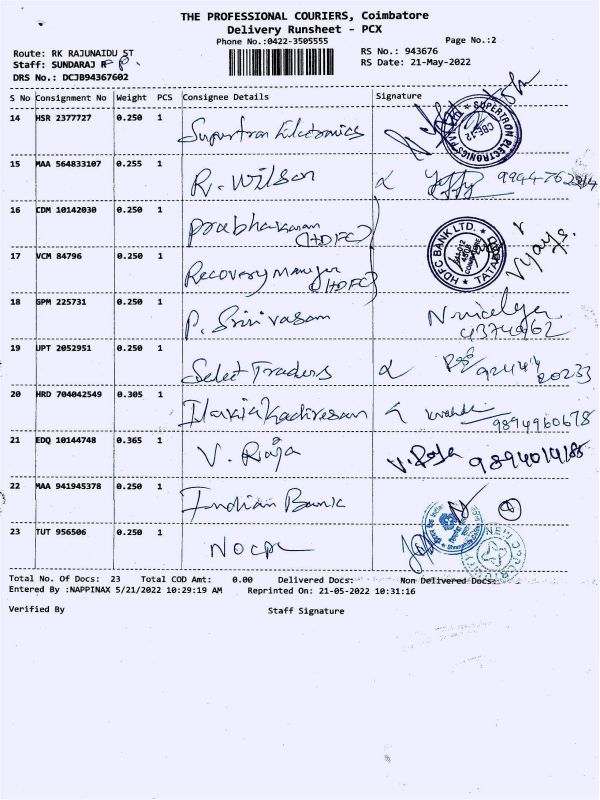 THE PROFESSIONAL COURIERS, Coimbatore
Delivery Runsheet - PCX
Phone No.:0422-3505555
Page No.:2
Route: RK RAJUNAIDU ST
RS No.: 943676
Staff: SUNDARAJ R
RS Date: 21-May-2022
DRS No.: DCJB94367602
S No Consignment No Weight PCS Consignee Details Signature
14 HSR 2377727 0.250 1 Supertron Electronics
SUPERTRON ELECTRONICS PVT LTD
CBE-12
15 MAA 564833107 0.255 1 R. Wilson
16 CDM 10142030 0.250 1 Prabhakaran
(HDFC)
HDFC BANK LTD.
17 VCM 84796 0.250 1 Recovery Manager
(HDFC)
18 GPM 225731 0.250 1 P. Srinivasan
19 UPT 2052951 0.250 1 Select Traders
20 HRD 704042549 0.305 1 Ilakiakadiresan 9894960678
21 EDQ 10144748 0.365 1 V. Raja V. Raja
22 MAA 941945378 0.250 1 Indian Bank
23 TUT 956506 0.250 1
Total No. Of Docs: 23 Total COD Amt: 0.00 Delivered Docs: Non Delivered Docs:
Entered By :NAPPINAX 5/21/2022 10:29:19 AM Reprinted On: 21-05-2022 10:31:16
Verified By Staff Signature